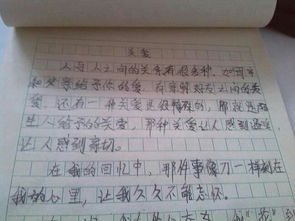 关爱
人与人之间的关爱有很多种，如同年
和父亲给予你的爱，有亲朋好友之间的关
爱，还有一种关爱是很特殊的，那就是陌
生人给予的关爱，那种关爱让人感到温暖
让人感到亲切。
在我的回忆中，那件事像刀一样刻在
我的心里，让我久久不能忘怀。